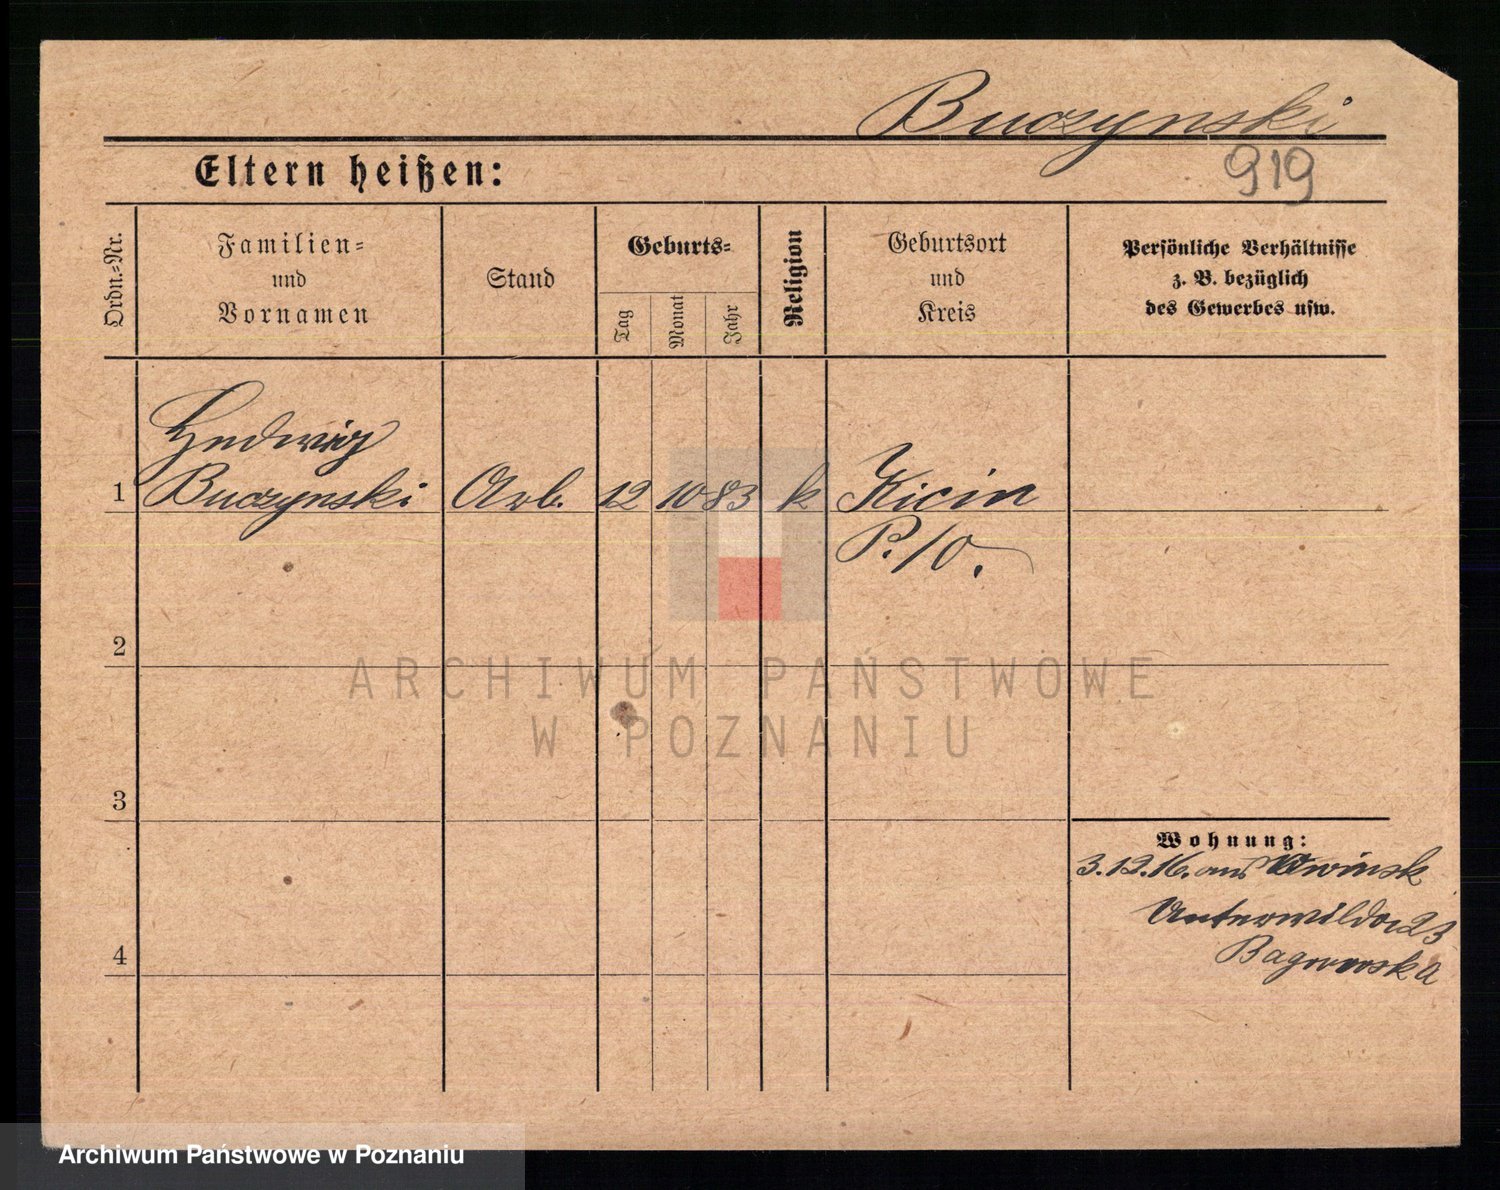 Buczynski
919
Eltern heißen:
Ordn.-Nr.
Familien-
und
Vornamen
Stand
Geburts-
Tag
Monat
Jahr
Religion
Geburtsort
und
Kreis
Persönliche Verhältnisse
z. B. bezüglich
des Gewerbes usw.
Hedwig
1 Buczynski Arb. 12 10 83 k Kicin
P./O.
2
3
4
Wohnung:
3.12.16. aus
Unterwilda 23
ARCHIWUM PAŃSTWOWE
W POZNANIU
Archiwum Państwowe w Poznaniu